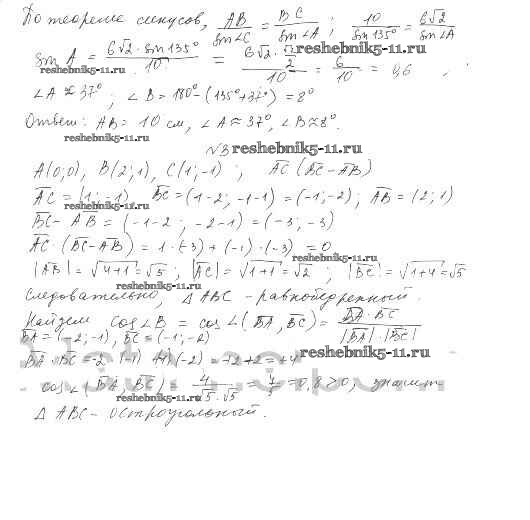 По теореме синусов, AB/sin∠C = BC/sin∠A ; 10/sin135° = 6√2/sin∠A
sin A = 6√2 · sin135°/10 = 6√2 · /10 = 6/10 = 0,6 ,
reshebnik5-11.ru
reshebnik5-11.ru
∠A ≈ 37° ; ∠B = 180° - (135° + 37°) = 8°
Ответ: AB = 10 см, ∠A ≈ 37°, ∠B ≈ 8°.
reshebnik5-11.ru
№3 reshebnik5-11.ru
A(0;0), B(2;1), C(1;-1) ; AC (BC - AB)
AC = (1; -1) BC = (1-2; -1-1) = (-1;-2); AB = (2; 1)
reshebnik5-11.ru
BC - AB = (-1-2 ; -2-1) = (-3; -3)
AC · (BC - AB) = 1 · (-3) + (-1) · (-3) = 0
reshebnik5-11.ru
|AB| = √4+1 = √5 ; |AC| = √1+1 = √2 ; |BC| = √1+4 = √5
reshebnik5-11.ru
Следовательно, △ABC - равнобедренный.
Найдем cos∠B = cos∠(BA, BC) = BA · BC/|BA| · |BC|
BA = (-2; -1), BC = (-1; -2)
reshebnik5-11.ru
BA · BC = -2 · (-1) + (-1)(-2) = +2+2 = +4
cos∠(BA, BC) = 4/√5 · √5 = 4/5 = 0,8 > 0, значит
reshebnik5-11.ru
△ABC - остроугольный.